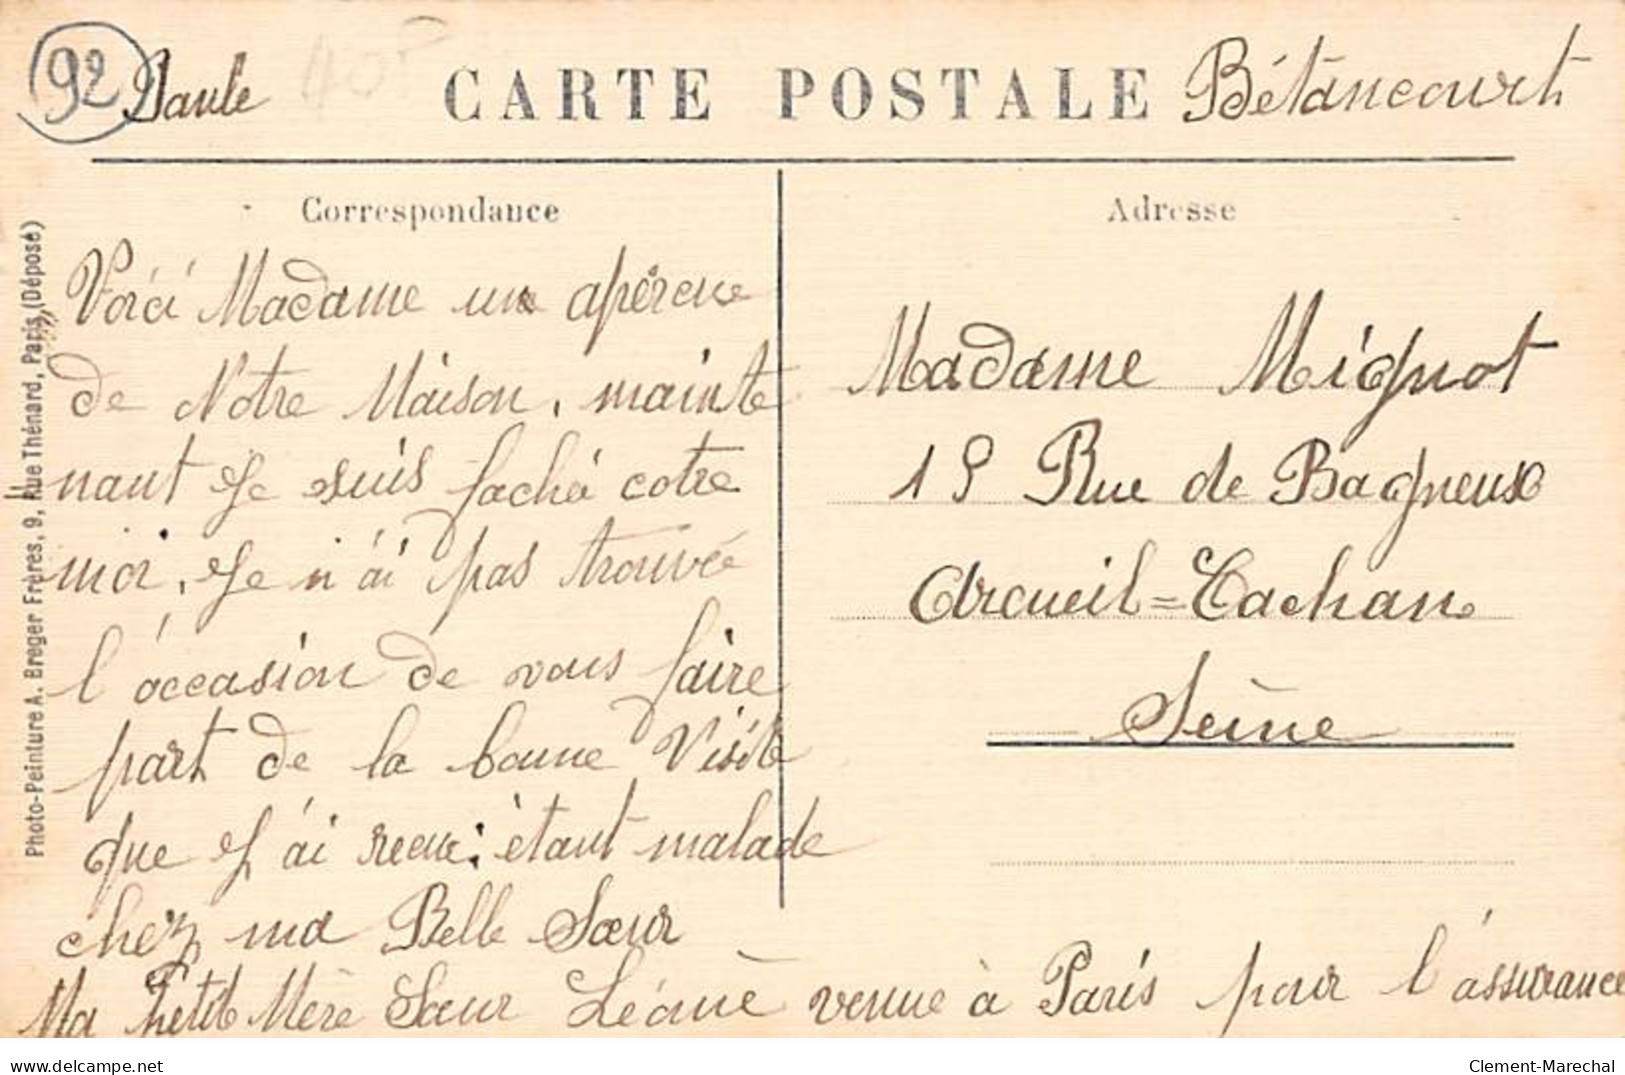 92
40F
CARTE POSTALE
Bétancourt
Correspondance
Adresse
Voici Madame un apércue
de Notre Maison, mainte
nant Je suis fachéi cotre
moi, Je n'ai pas trouvée
l'occasion de vous faire
part de la bonne Visite
que J'ai recue; étant malade
chez ma Belle Sœur
Ma Petite Mère Sœur Léonie venue à Paris pour l'assurance
Madame Mignot
Rue de Bagneux
Arcueil=Cachan
Seine
Photo-Peinture A. Breger Frères, 9, Rue Thénard, Paris (Déposé)
www.delcampe.net
Clement-Marechal